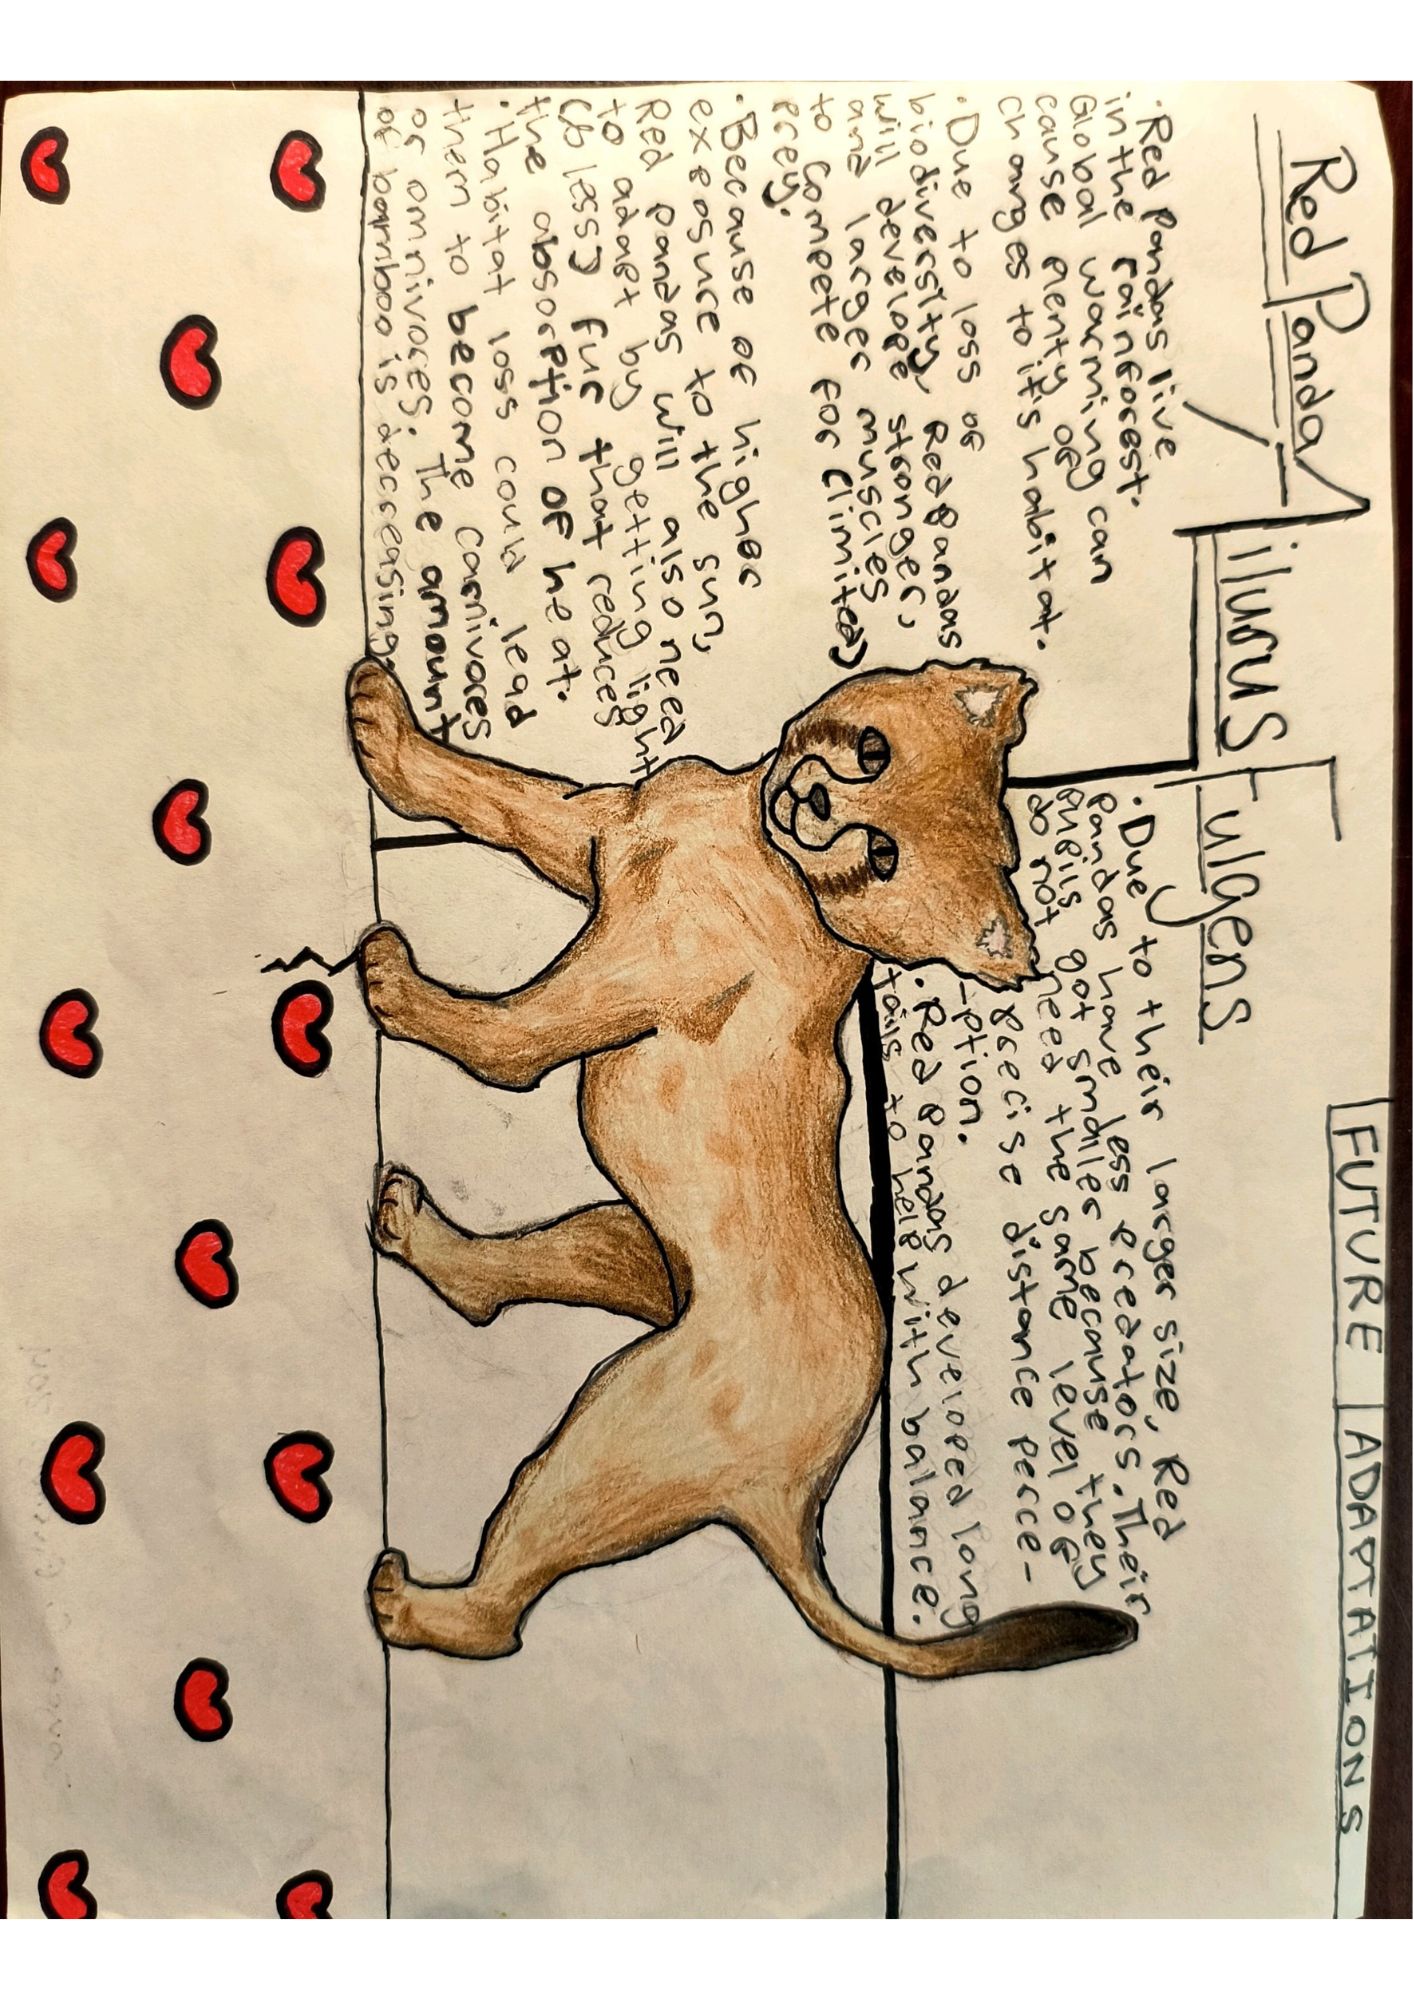 Red Panda
Ailurus Fulgens
FUTURE ADAPTATIONS
· Red Pandas live
in the rainforest.
Global warming can
cause plenty of
changes to it's habitat.
· Due to loss of
biodiversity, Red Pandas
will develope stronger,
and larger muscles
to compete for (limited)
prey.
· Because of higher
exposure to the sun,
Red pandas will also need
to adapt by getting light
(b less) fur that reduces
the absorption of heat.
· Habitat loss could lead
them to become carnivores
or omnivores. The amount
of bamboo is decreasing.
· Due to their larger size, Red
pandas have less predators. Their
pupils got smaller because they
do not need the same level of
precise distance perce-
-ption.
· Red Pandas developed long
tails to help with balance.